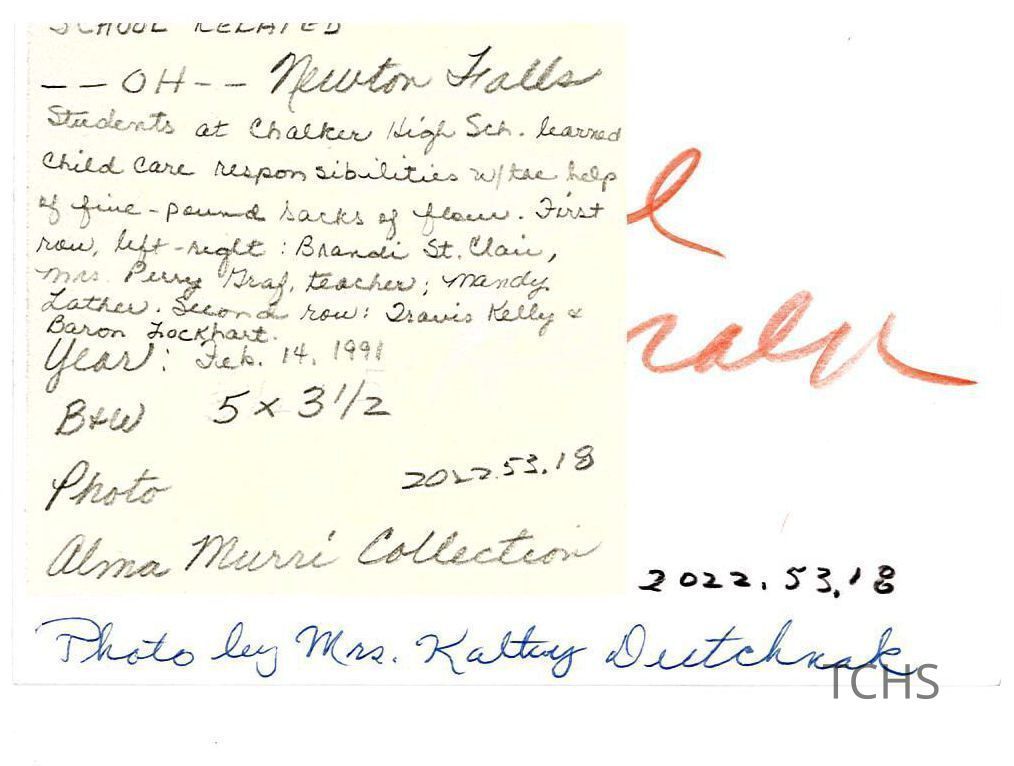 SCHOOL RELATED
-- OH -- Newton Falls
Students at Chalker High Sch. learned
child care responsibilities w/the help
of five-pound sacks of flour. First
row, left-right: Brandi St. Clair,
Mrs. Perry Graf, teacher; Mandy
Lather. Second row: Travis Kelly &
Baron Lockhart.
Year: Feb. 14, 1991
B+W 5 x 3 1/2
Photo 2022.53.18
Alma Murri Collection
2022.53.18
Photo by Mrs. Kathy Deutchnak
TCHS